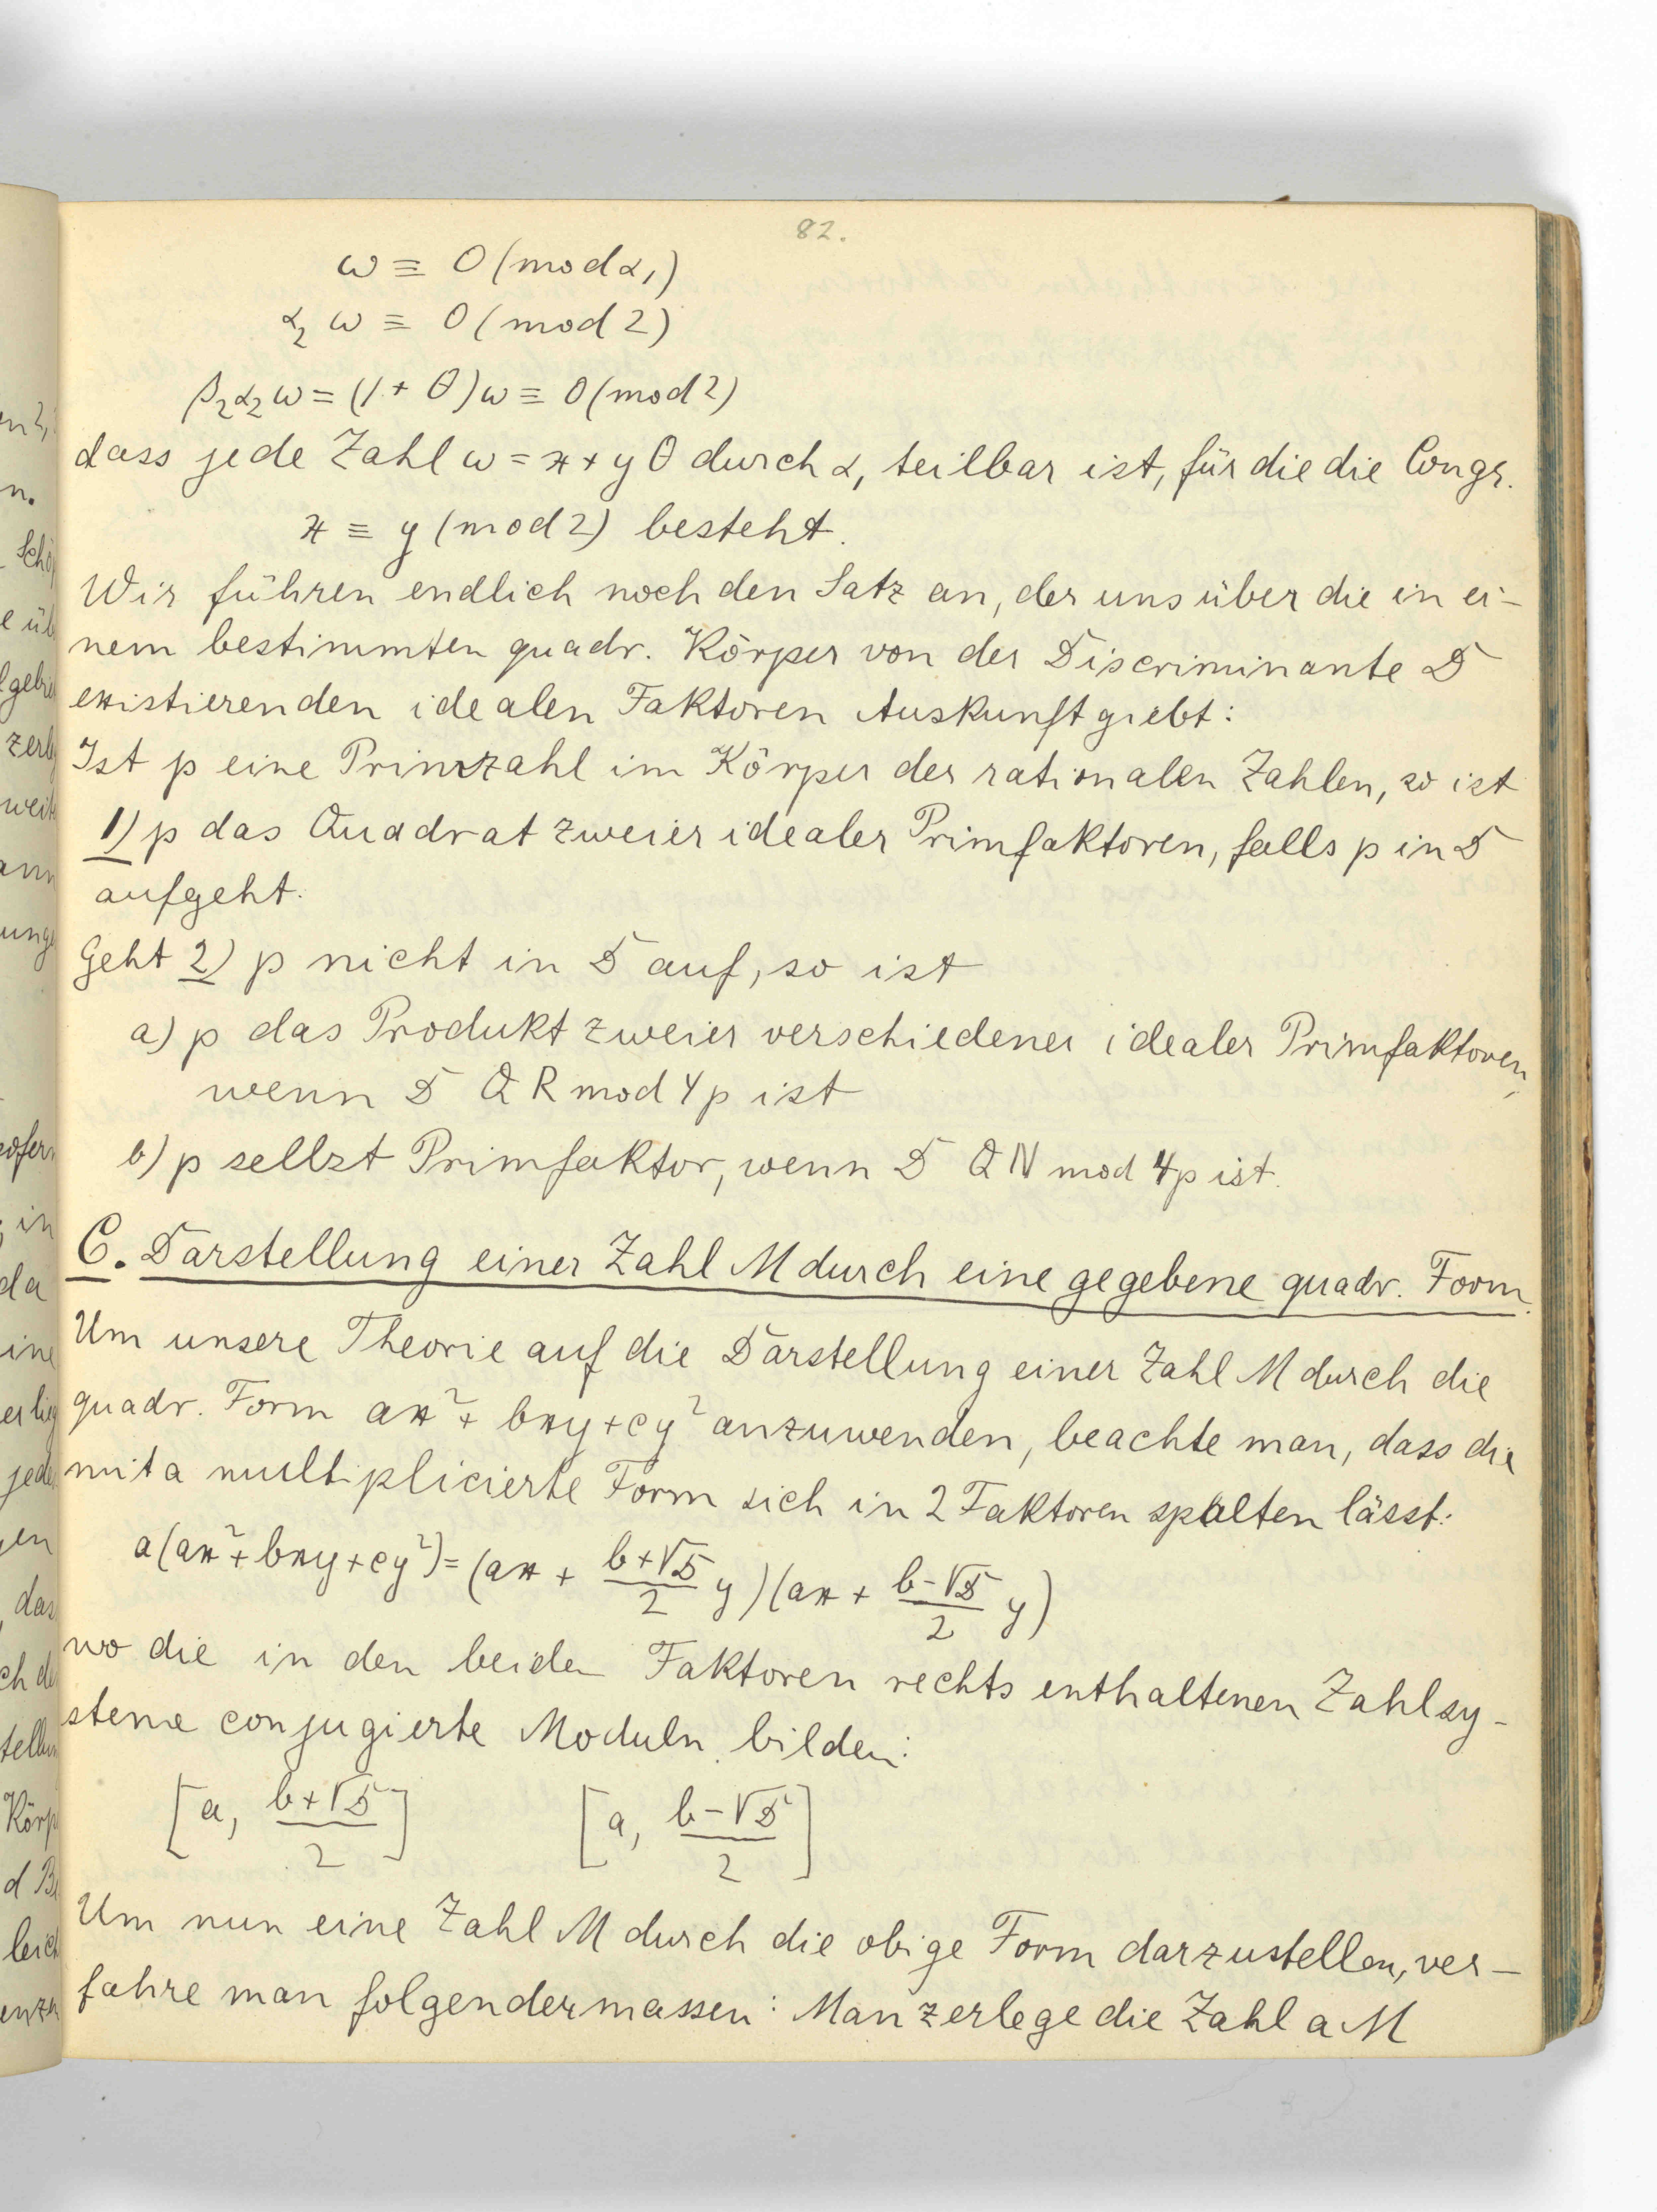 82.
ω ≡ 0 (mod α₁)
α₂ ω ≡ 0 (mod 2)
β₂α₂ω = (1 + θ)ω ≡ 0 (mod 2)
dass jede Zahl ω = x + yθ durch α₁ teilbar ist, für die die Congr.
x ≡ y (mod 2) besteht.
Wir führen endlich noch den Satz an, der uns über die in ei-
nem bestimmten quadr. Körper von der Discriminante D
existierenden idealen Faktoren Auskunft giebt:
Ist p eine Primzahl im Körper der rationalen Zahlen, so ist
1) p das Quadrat zweier idealer Primfaktoren, falls p in D
aufgeht.
Geht 2) p nicht in D auf, so ist
a) p das Produkt zweier verschiedener idealer Primfaktoren,
wenn D QR mod 4p ist
b) p sellbst Primfaktor, wenn D QN mod 4p ist.
C. Darstellung einer Zahl M durch eine gegebene quadr. Form.
Um unsere Theorie auf die Darstellung einer Zahl M durch die
quadr. Form ax² + bxy + cy² anzuwenden, beachte man, dass die
mit a multiplicierte Form sich in 2 Faktoren spalten lässt:
a(ax² + bxy + cy²) = (ax + (b+√D)/2 y)(ax + (b-√D)/2 y)
wo die in den beiden Faktoren rechts enthaltenen Zahlsy-
steme conjugierte Moduln bilden:
[a, (b+√D)/2] [a, (b-√D)/2]
Um nun eine Zahl M durch die obige Form darzustellen, ver-
fahre man folgendermassen: Man zerlege die Zahl a M